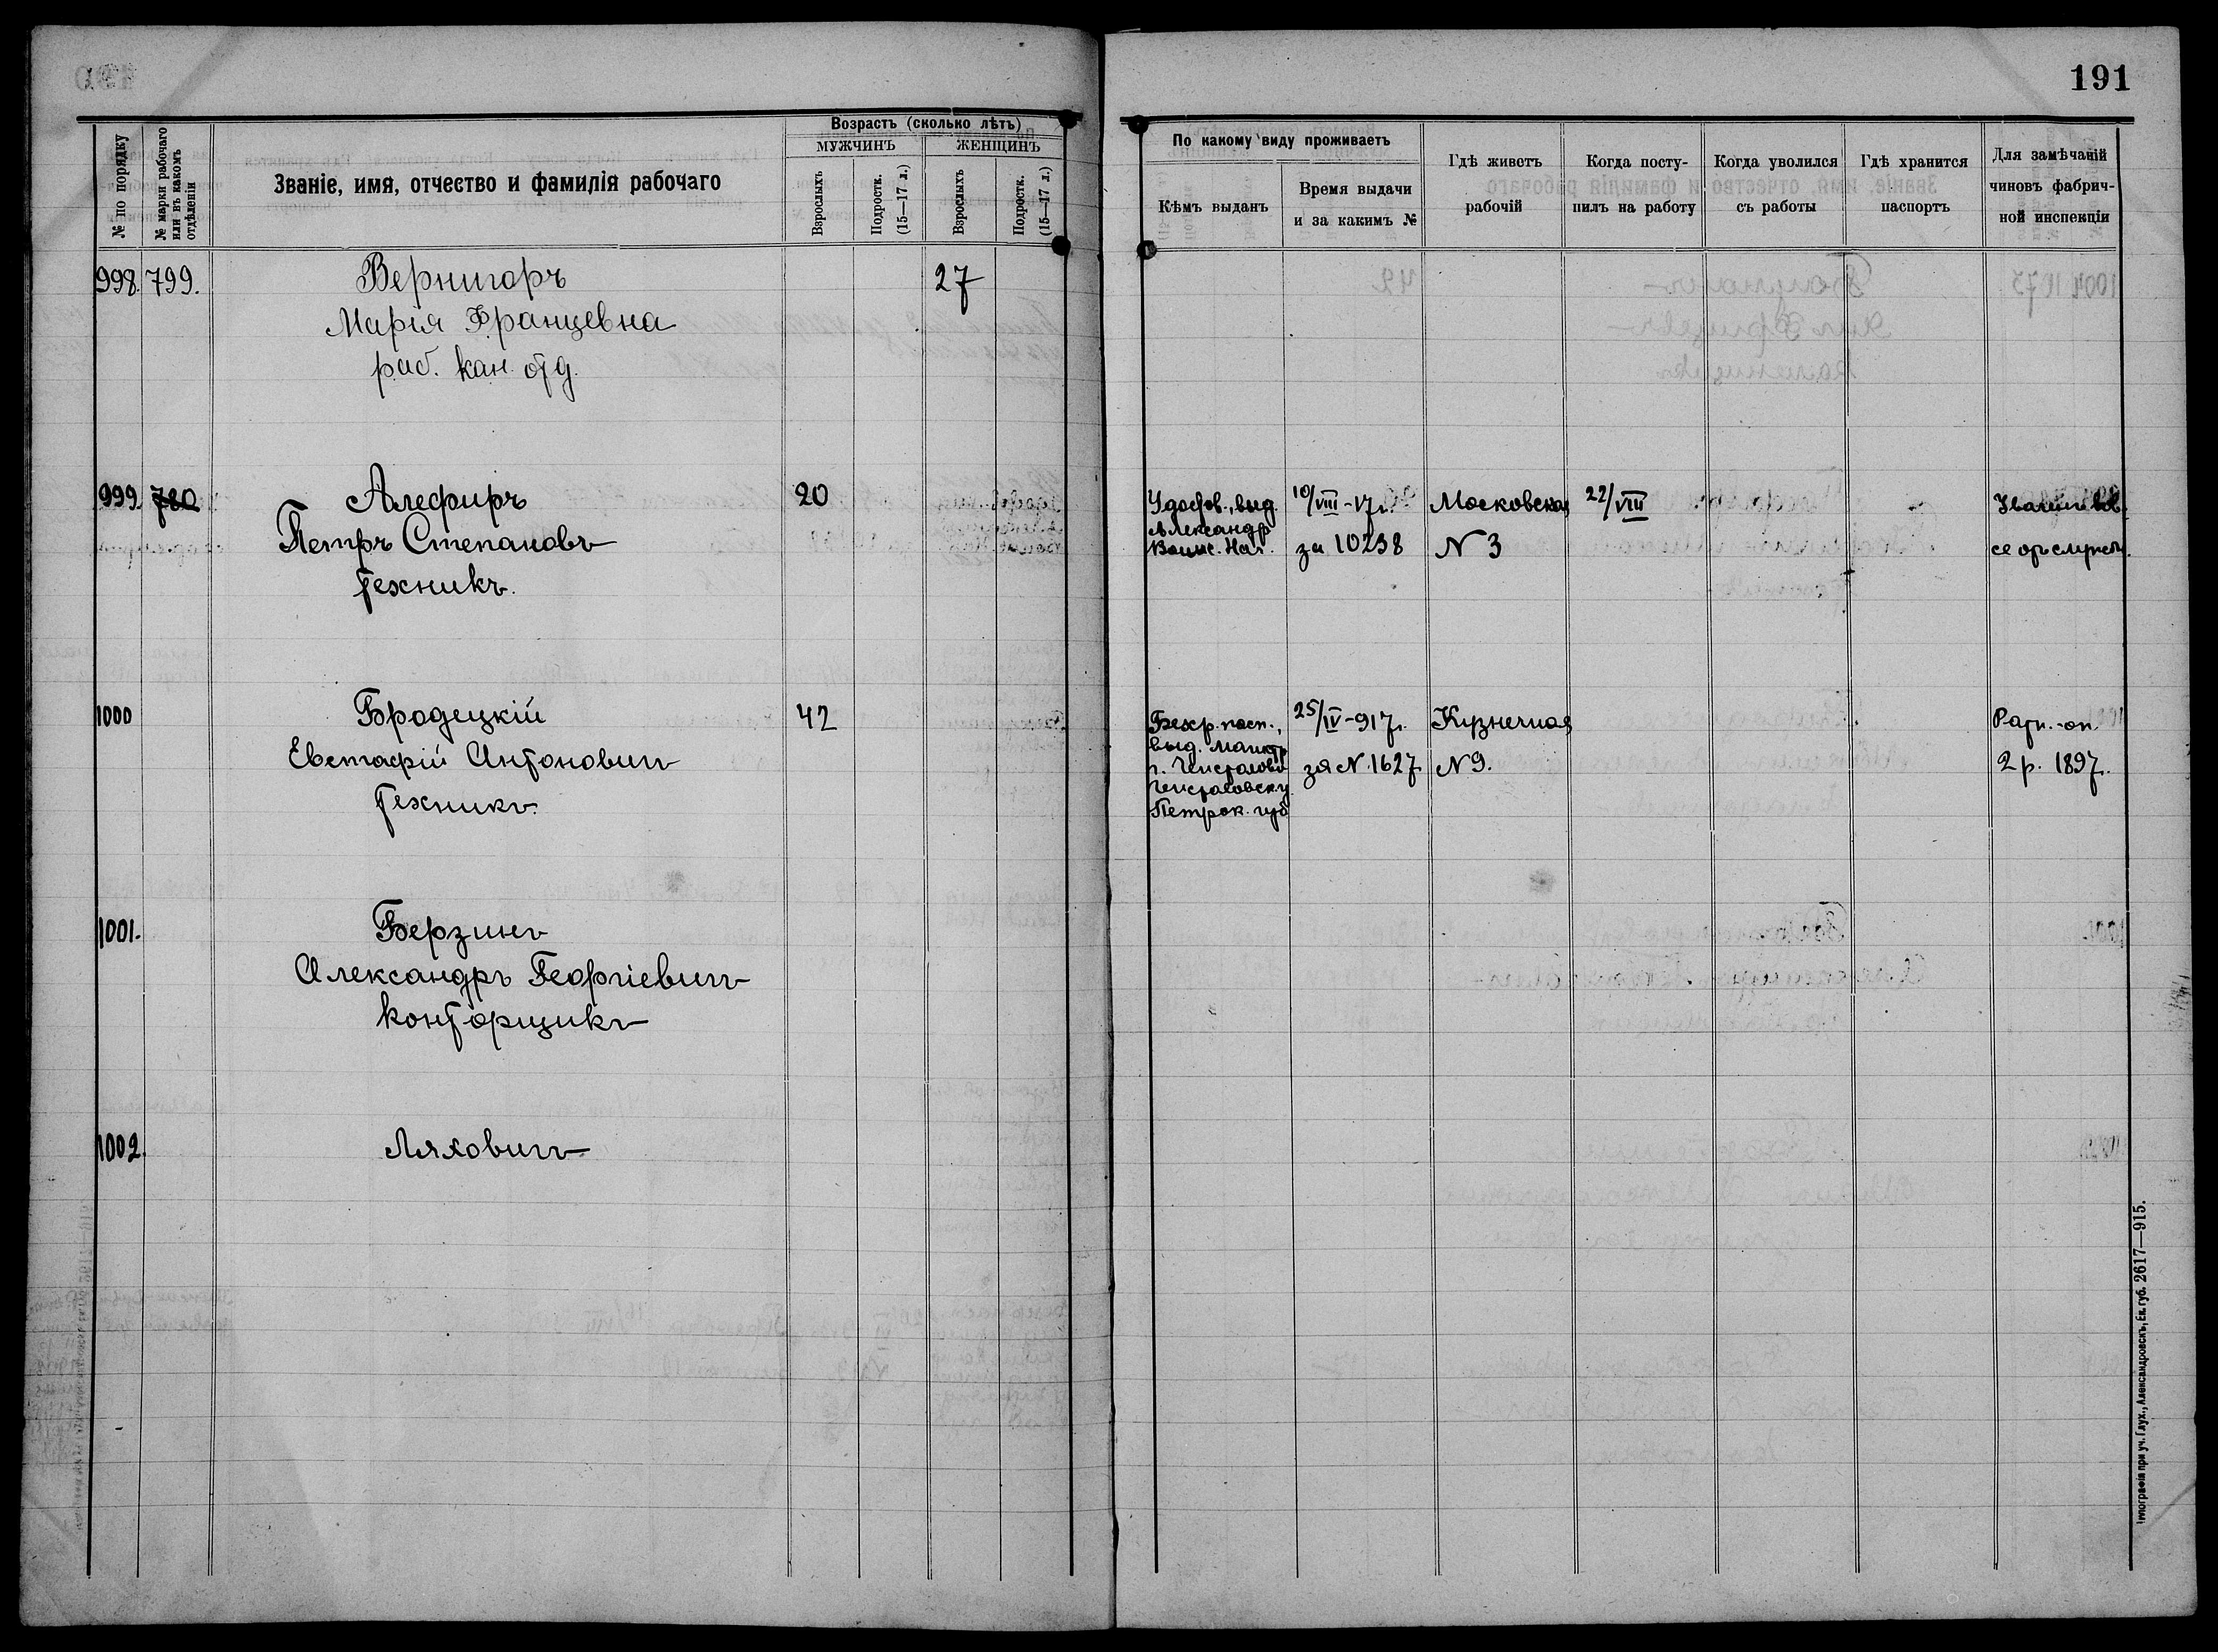 191
№ по порядку
№ марки рабочаго или въ какомъ отдѣленіи
Званіе, имя, отчество и фамилія рабочаго
Возрастъ (сколько лѣтъ)
МУЖЧИНЪ
ЖЕНЩИНЪ
Взрослыхъ
Подростк. (15—17 л.)
Взрослыхъ
Подростк. (15—17 л.)
По какому виду проживаетъ
Кѣмъ выданъ
Время выдачи и за какимъ №
Гдѣ живетъ рабочій
Когда поступилъ на работу
Когда уволился съ работы
Гдѣ хранится паспортъ
Для замѣчаній чиновъ фабричной инспекціи
998. 799. Вернигоръ 27
Марія Францевна
раб. кан. отд.
999. 780 Алефиръ 20 Удостов., выд. 10/VIII-17 г. Московская 22/VIII
Петръ Степановъ Александр. Воинс. Нач. за 10238 N 3
техникъ.
1000 Бродецкій 42 Безср. пасп., 25/IV-917 г. Кузнечная Ратн.-оп.
Евстафій Антоновичъ выд. Магистр. г. Ченстахова за N 1627 N 9. 2 р. 1897.
техникъ. Ченстаховск. у. Петрок. губ
1001. Берзинъ
Александръ Георгіевичъ
конторщикъ
1002. Ляховичъ
Типографія при уч. Глух., Александровскъ, Ек. губ. 2617—915.